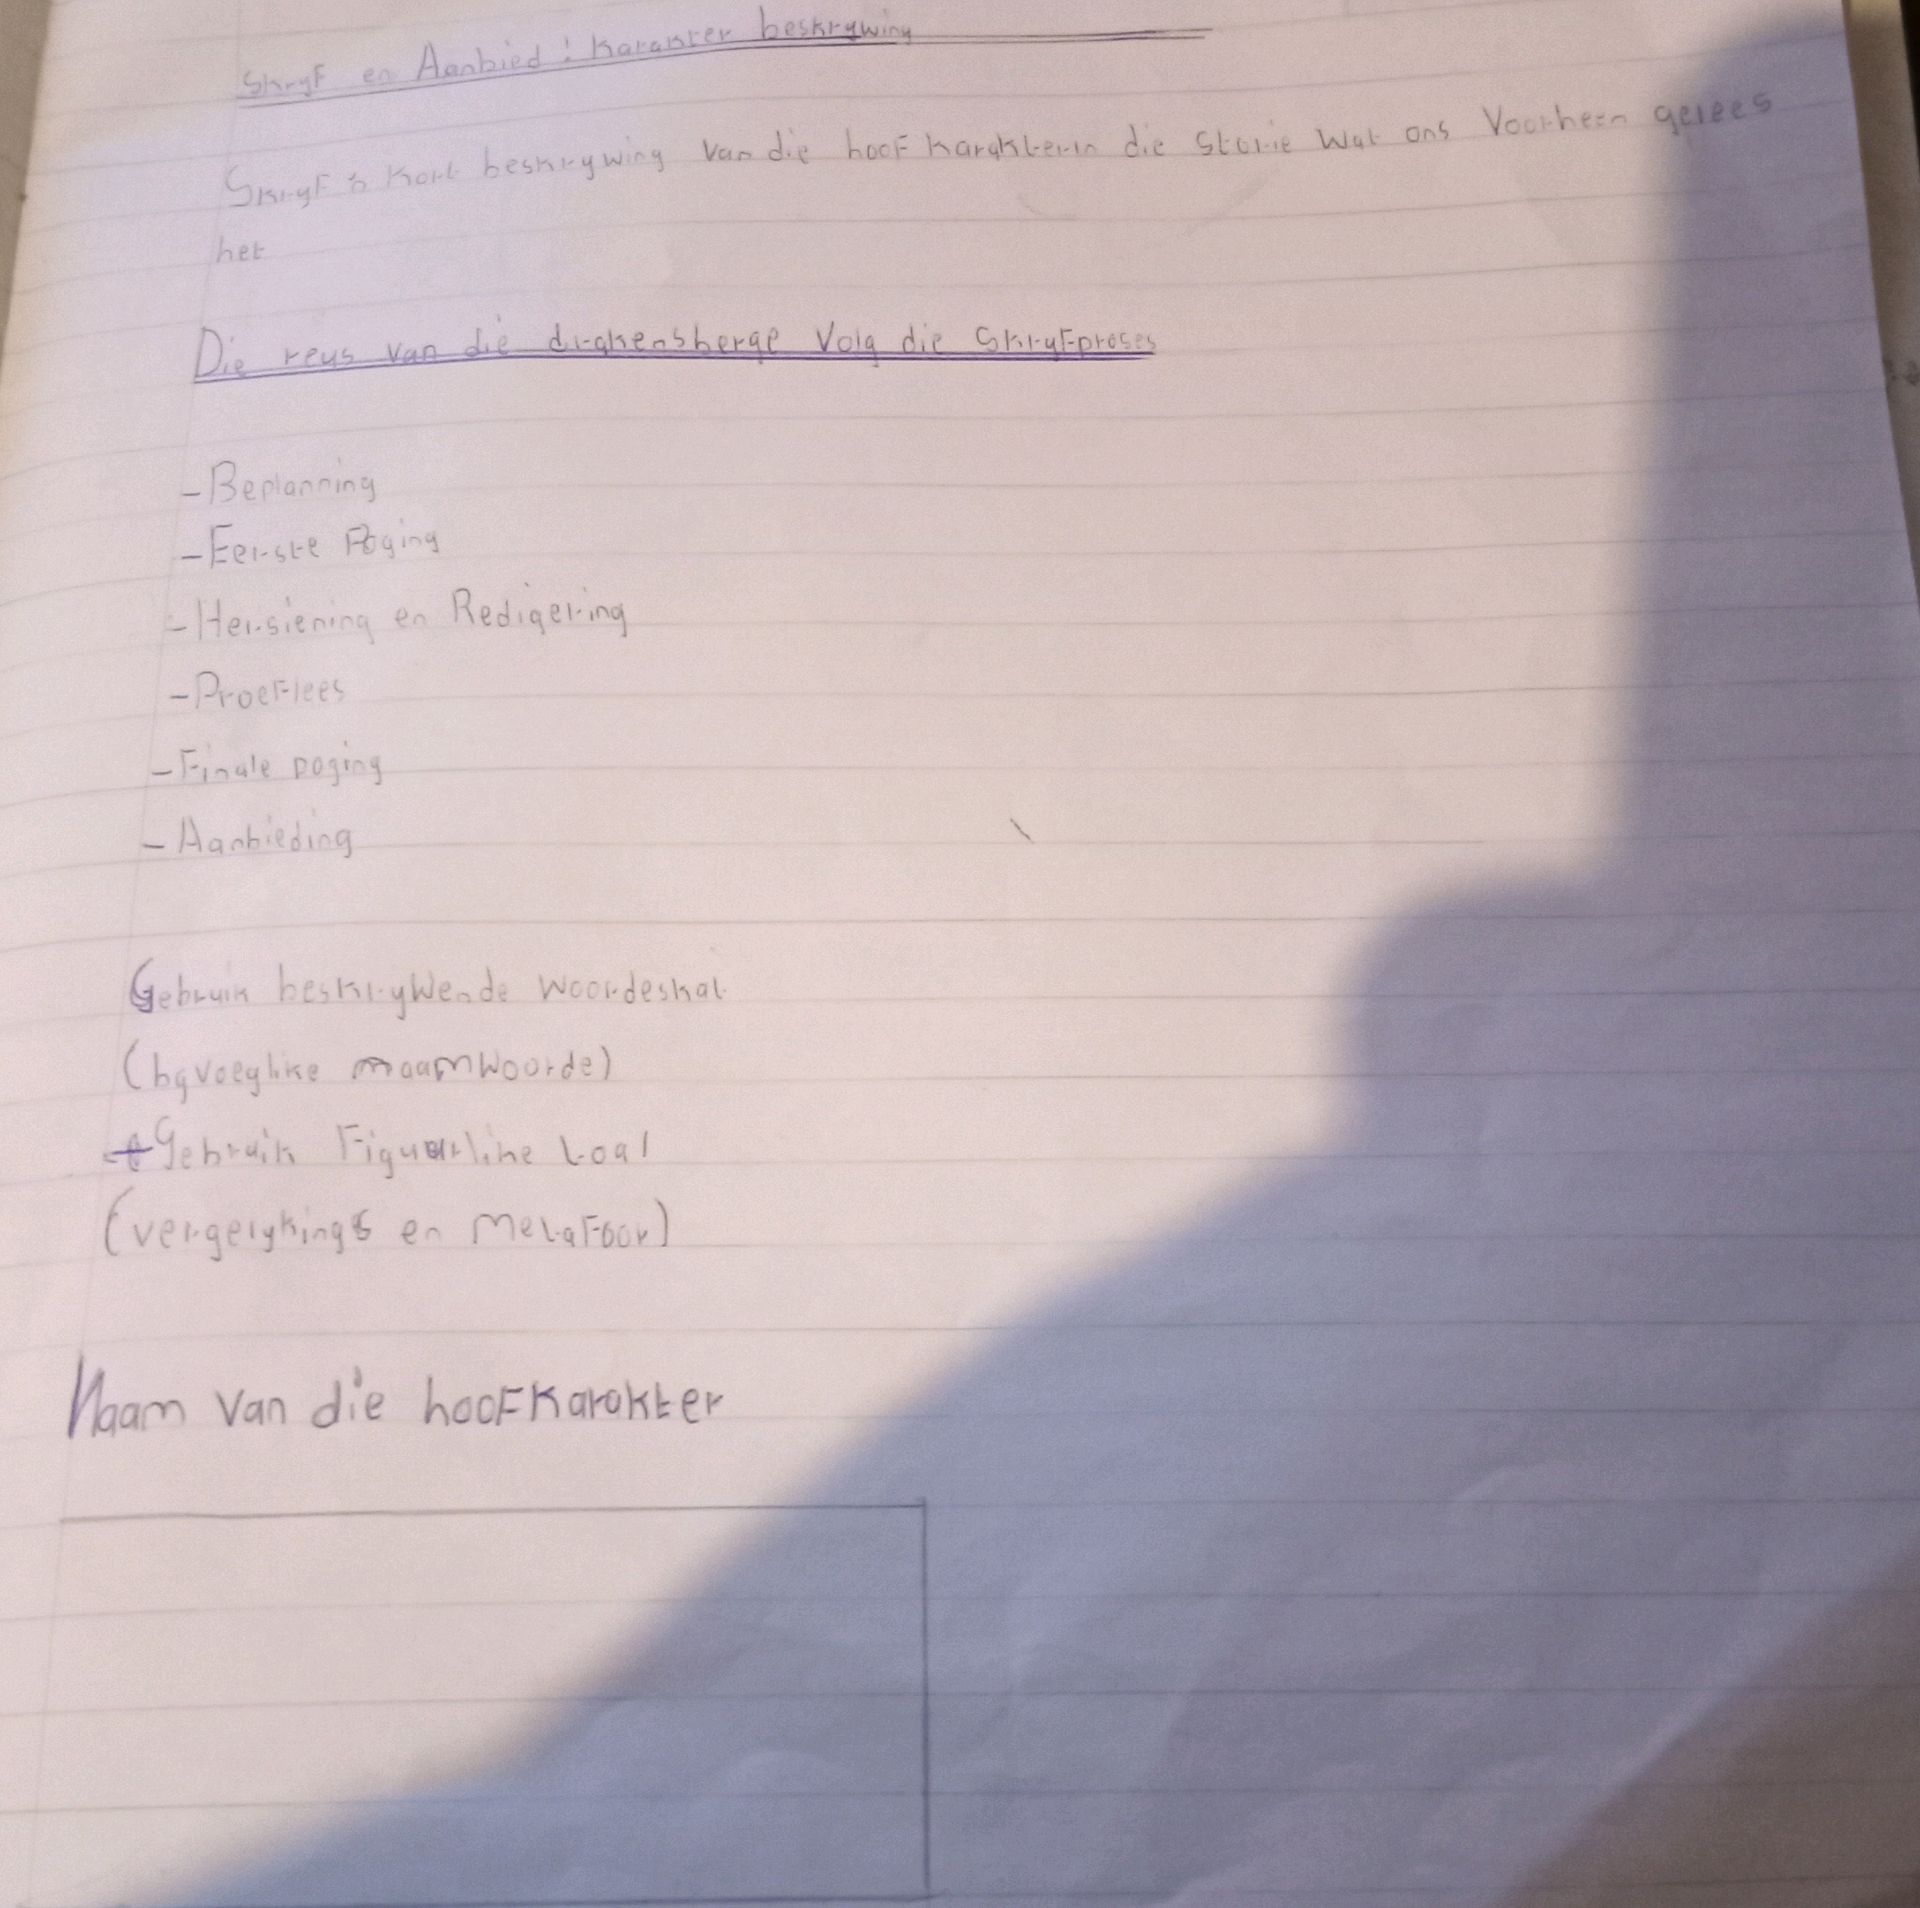 Skryf en Aanbied : Karakter beskrywing
Skryf 'n kort beskrywing van die hoof karakter in die storie wat ons voorheen gelees
het
Die reus van die drakensberge Volg die Skryfproses
- Beplanning
- Eerste Poging
- Hersiening en Redigering
- Proeflees
- Finale poging
- Aanbieding
Gebruik beskrywende woordeskat
(byvoeglike naamwoorde)
Gebruik Figuurlike taal
(vergelykings en Metafoor)
Naam van die hoofkarakter